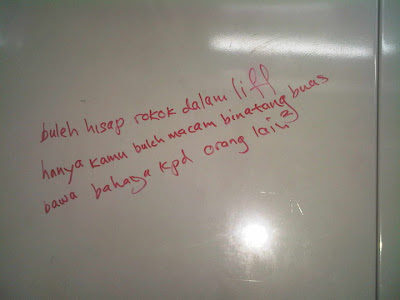 buleh hisap rokok dalam liff
hanya kamu buleh macam binatang buas
bawa bahaga kpd orang lain2